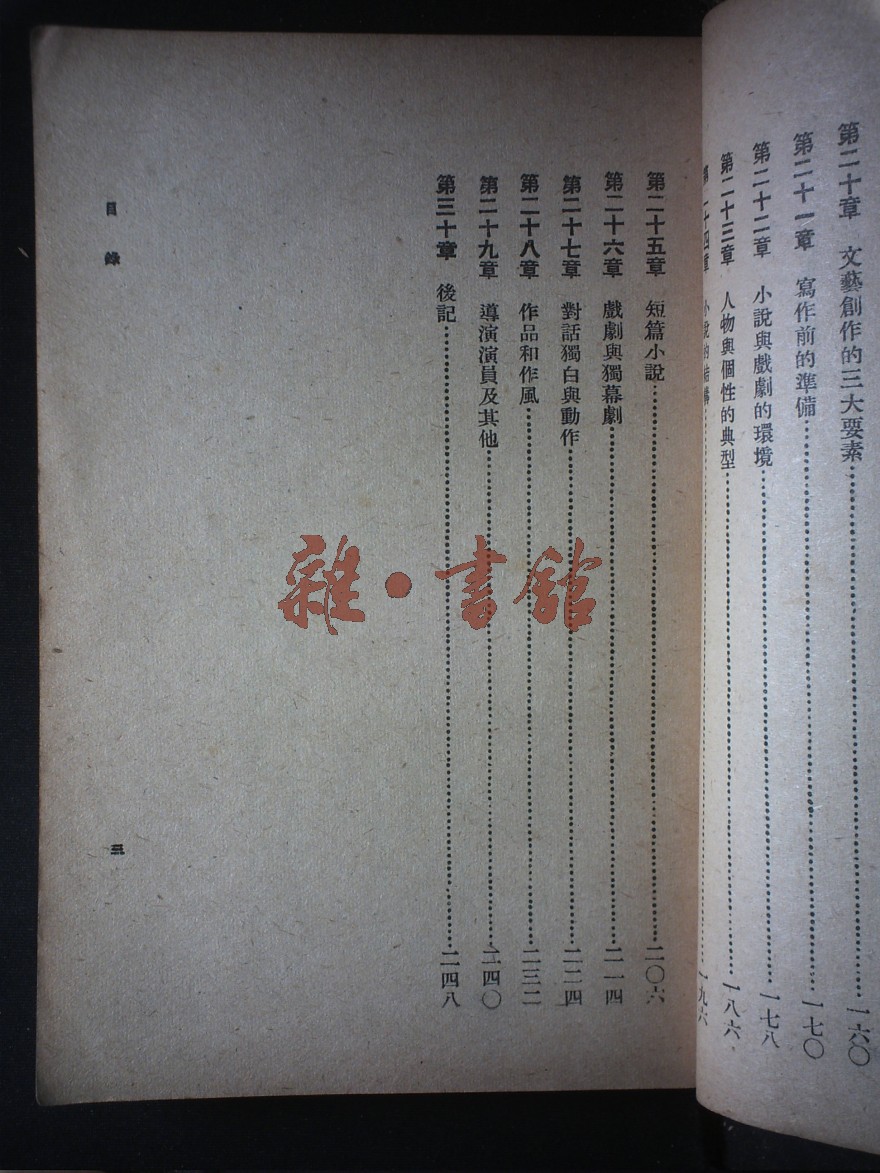 第二十章 文藝創作的三大要素……一六〇
第二十一章 寫作前的準備……一七〇
第二十二章 小說與戲劇的環境……一七八
第二十三章 人物與個性的典型……一八六
第二十四章 小說的結構……一九六
第二十五章 短篇小說……二〇六
第二十六章 戲劇與獨幕劇……二一四
第二十七章 對話獨白與動作……二二四
第二十八章 作品和作風……二三二
第二十九章 導演演員及其他……二四〇
第三十章 後記……二四八
目錄
三
雜·書館